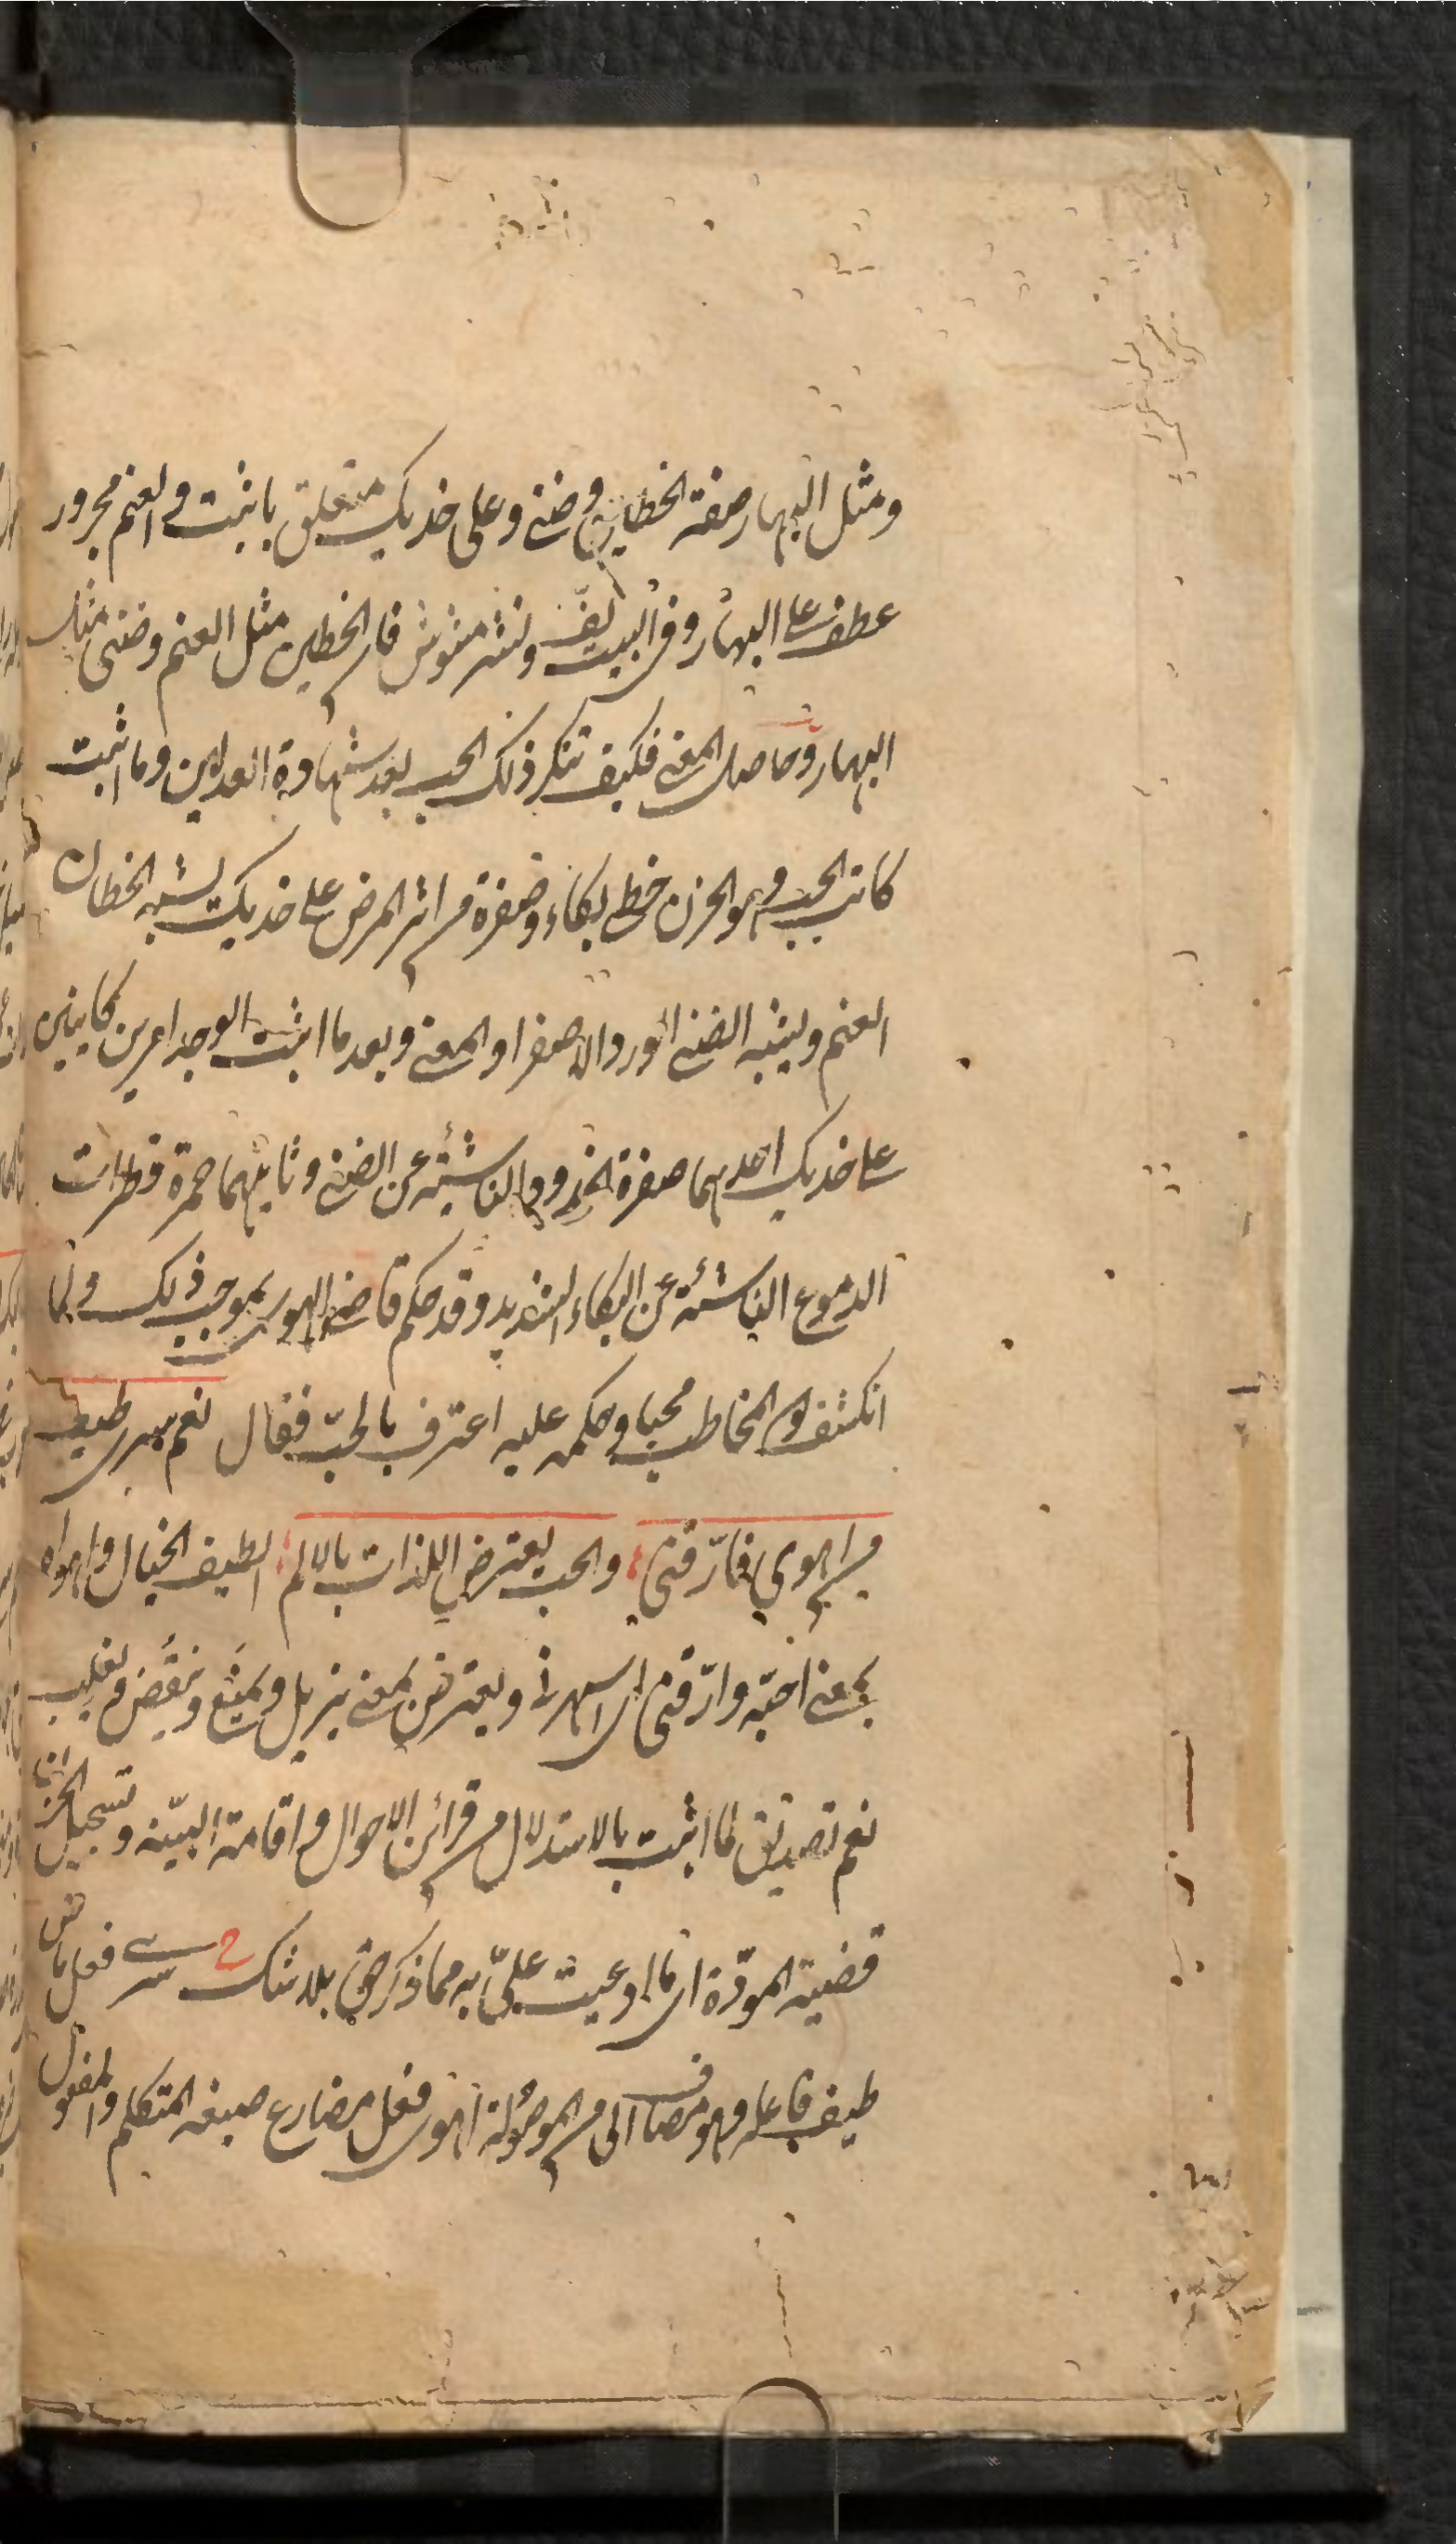 ومثل البهار صفة الخطين وضنى وعلى خديك متعلق باثبت والعنم مجرور
عطف على البهار وفى البيت لفّ ونشر مشوش فان الخطين مثل العنم وضنى مثل
البهار وحاصل المعنى فكيف تنكر ذلك الحب بعد شهادة العدلين وما اثبت
كاتب الحب وهو الحزن خطى بكاء وصفرة من اثر المرض على خديك يشبه الخطان
العنم ويشبه الضنى الورد الاصفر او المعنى وبعد ما اثبت الوجد امرين كاينين
على خديك احدهما صفرة الخدود الناشئة عن الضنى وثانيهما حمرة قطرات
الدموع الناشئة عن البكاء الشديد وقد حكم قاضى الهوى بموجب ذلك ولما
انكشف كون المخاطب محبا وحكمه عليه اعترف بالحبّ فقال نعم سرى طيف
من اهوى فارّقنى والحب يعترض اللذات بالالم الطيف الخيال واهواه
بمعنى احبّه وارّقنى اى اسهرنى ويعترض بمعنى يزيل ويمنع وينغّص ويغلب
نعم تصديق لما اثبت بالاستدلال من قرائن الاحوال واقامة البيّنة وتسجيل الحزن
قضية المودّة اى ما ادعيت علىّ به مما ذكر حق بلا شك سرى فعل ماض
طيف فاعله وهو مضاف الى من الموصولة اهوى فعل مضارع صيغة المتكلم والمفعول